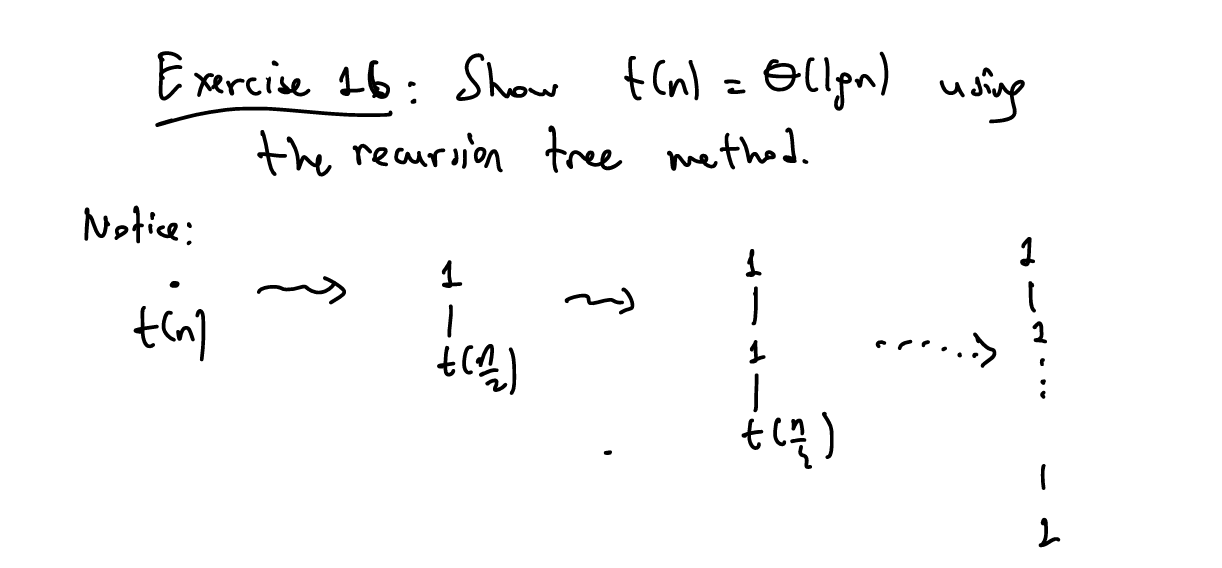 Exercise 16: Show t(n) = Θ(lgn) using
the recursion tree method.
Notice:
t(n)
1
t(n/2)
1
1
t(n/4)
1
1
1
1